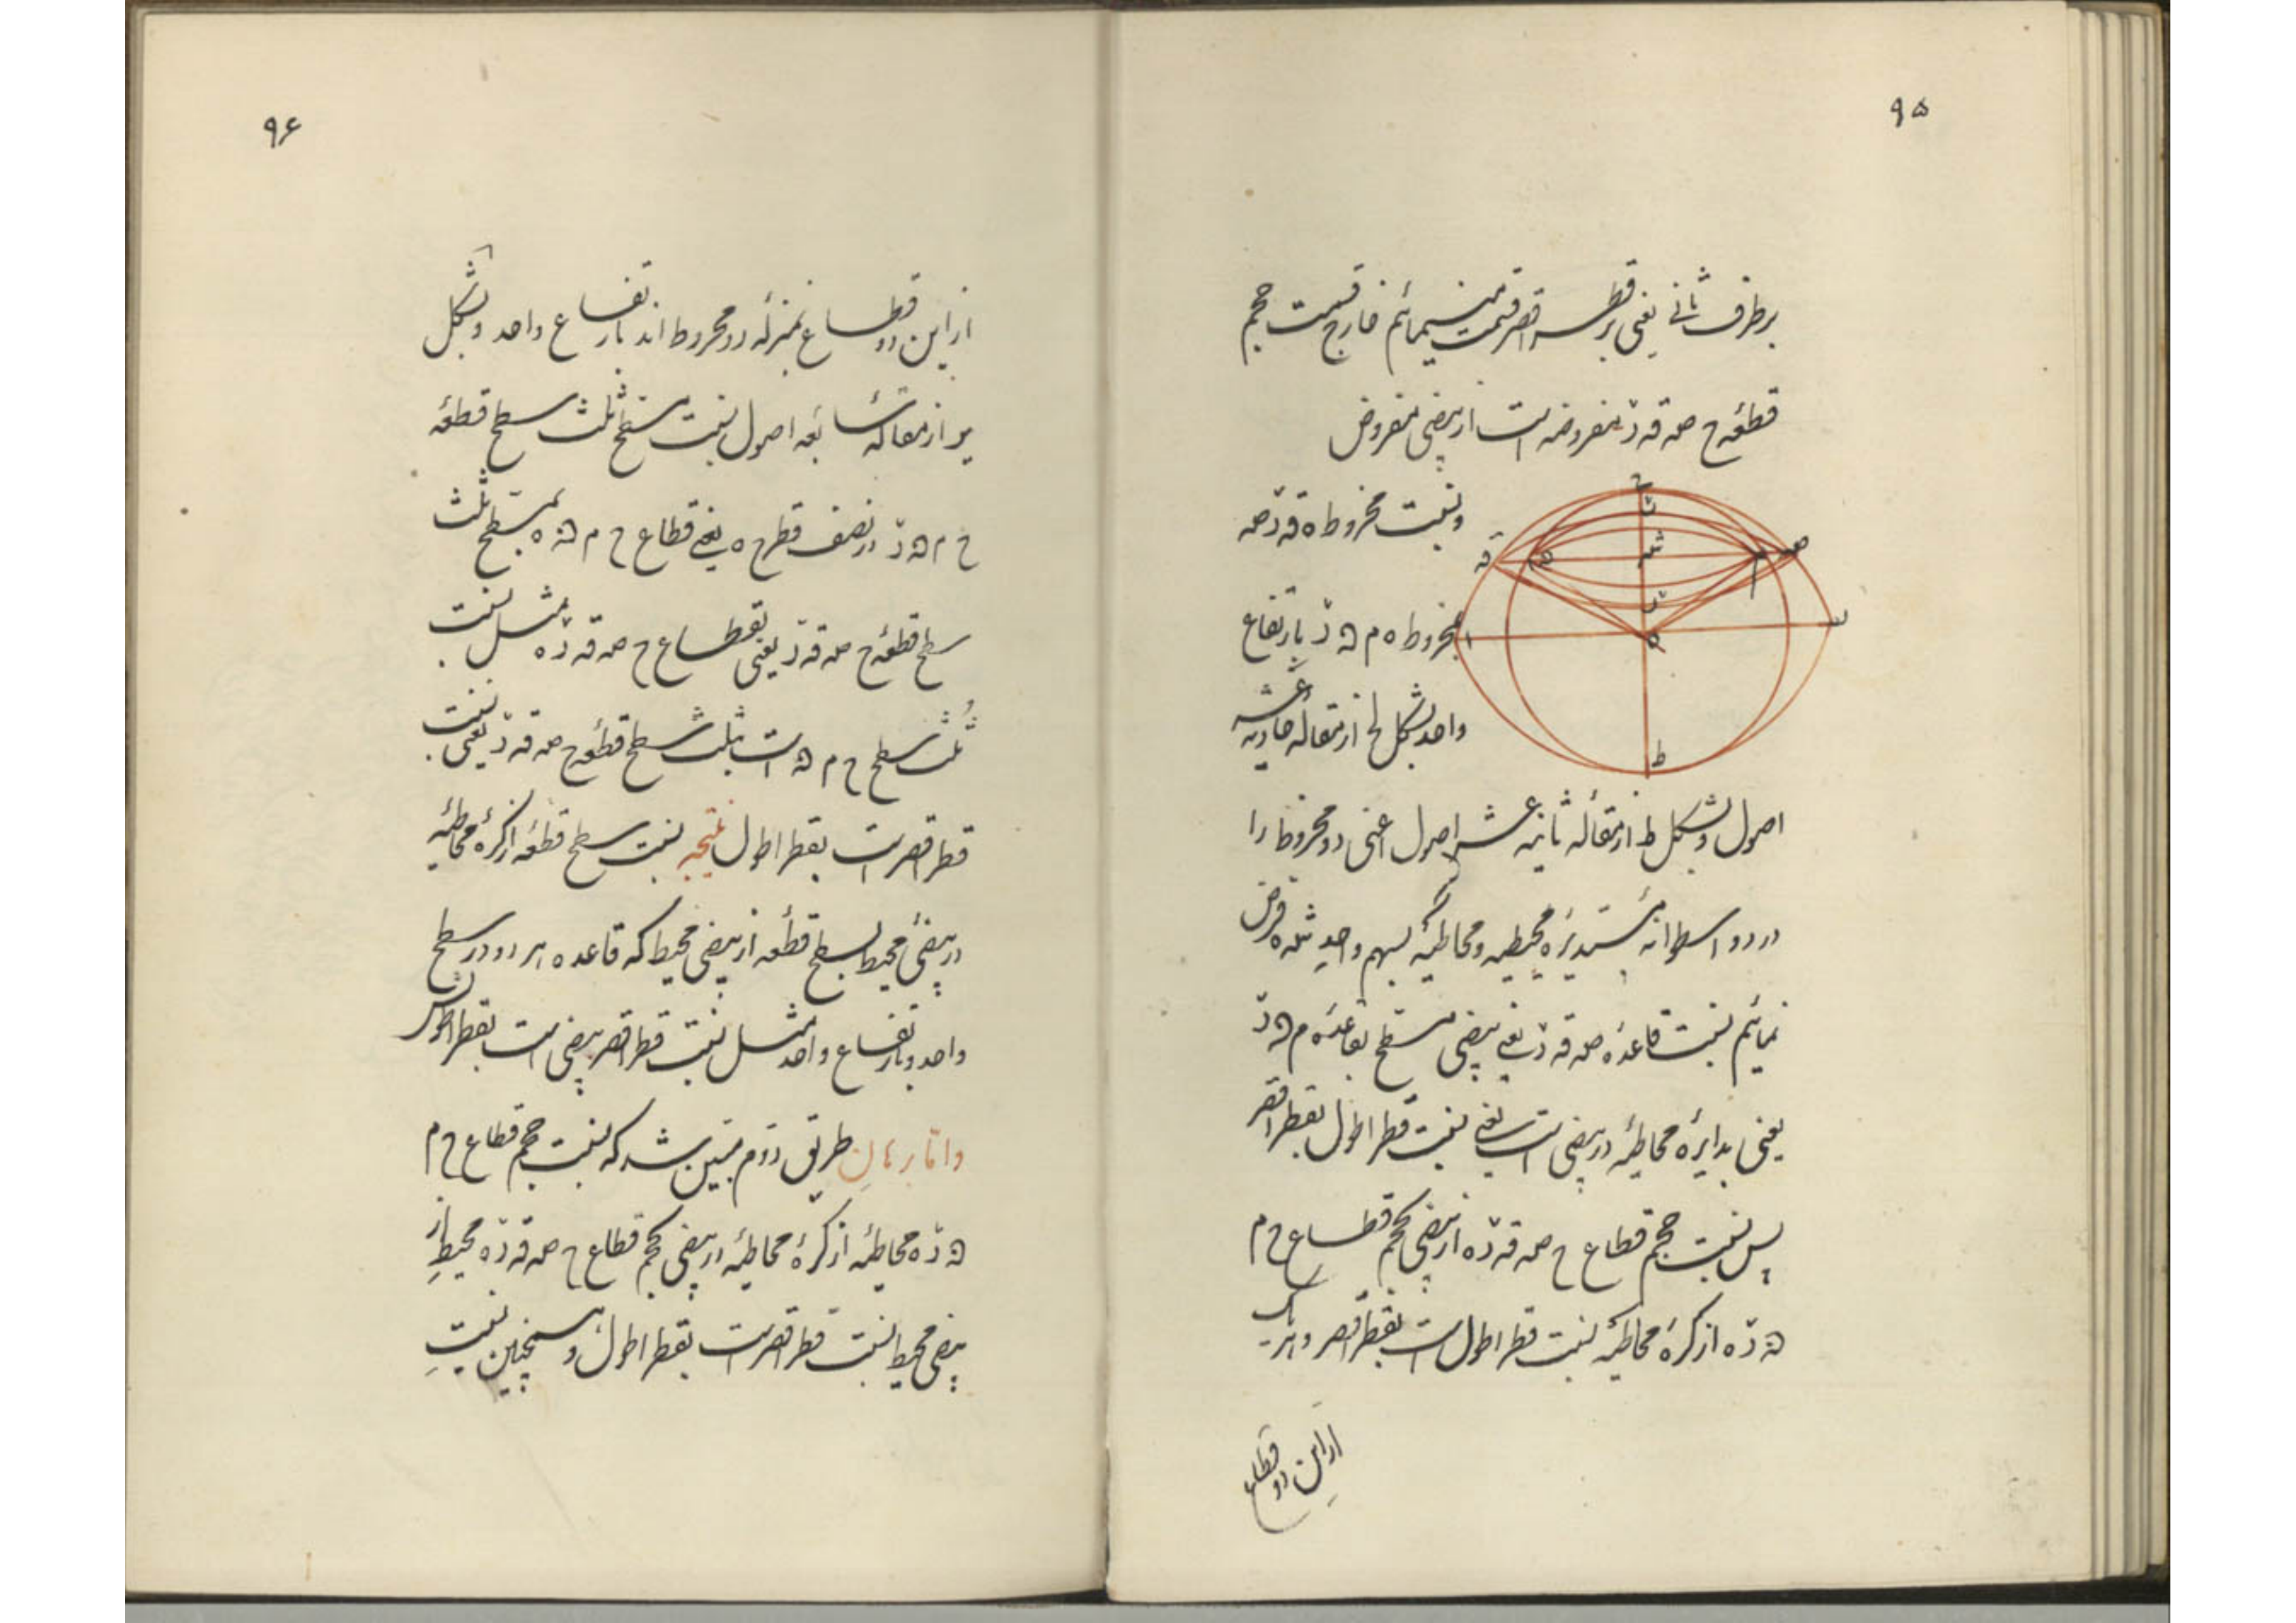 ۹۵
بر طرف ثانی یعنی بر قطر اقصر قسمت نمائیم خارج قسمت حجم
قطعه ح صه قه رّ مفروضه است از بیضی مفروض
و نسبت مخروط ه قه رّ صه
بمخروط ه م ﻫ رّ بارتفاع
واحد بشکل لح از مقاله حادیه عشر
اصول و بشکل ط از مقاله ثانیه عشر اصول اعنی دو مخروط را
در دو اسطوانه مستدیره محیطیه و محاطیه بسهم واحد مثله فرض
نمائیم نسبت قاعده صه قه رّ یعنی بیضی مسطح بقاعده م ﻫ رّ
یعنی بدایره محاطیه در بیضی است یعنی نسبت قطر اطول بقطر اقصر
پس نسبت حجم قطاع ح صه قه رّ ه از بیضی بحجم قطاع ح م
ﻫ رّ ه از کره محاطیه نسبت قطر اطول است بقطر اقصر و هر یک
از این دو قطاع
ح
ت
ق
ﻫ
م
صه
ه
ا
ط
۹۶
از این دو قطاع بمنزله دو مخروط اند بارتفاع واحد و بشکل
یو از مقاله سابعه اصول نسبت مسطح ثلث سطح قطعه
ح م ﻫ رّ در نصف قطر ح ه یعنی قطاع ح م ﻫ ه بمسطح ثلث
سطح قطعه ح صه قه رّ یعنی بقطاع ح صه قه رّ ه مثل نسبت
ثلث سطح ح م ﻫ است بثلث سطح قطعه ح صه قه رّ یعنی نسبت
قطر اقصر است بقطر اطول نتیجه نسبت سطح قطعه از کره محاطیه
در بیضی محیط بسطح قطعه از بیضی محیط که قاعده هر دو در سطح
واحد و بارتفاع واحد مثل نسبت قطر اقصر بیضی است بقطر اطولش
و اما برهان طریق دوم مبین شد که نسبت حجم قطاع ح م
ﻫ رّ ه محاطیه از کره محاطیه در بیضی بحجم قطاع ح صه قه رّ ه محیط از
بیضی محیط نسبت قطر اقصر است بقطر اطول و همچنین نسبت